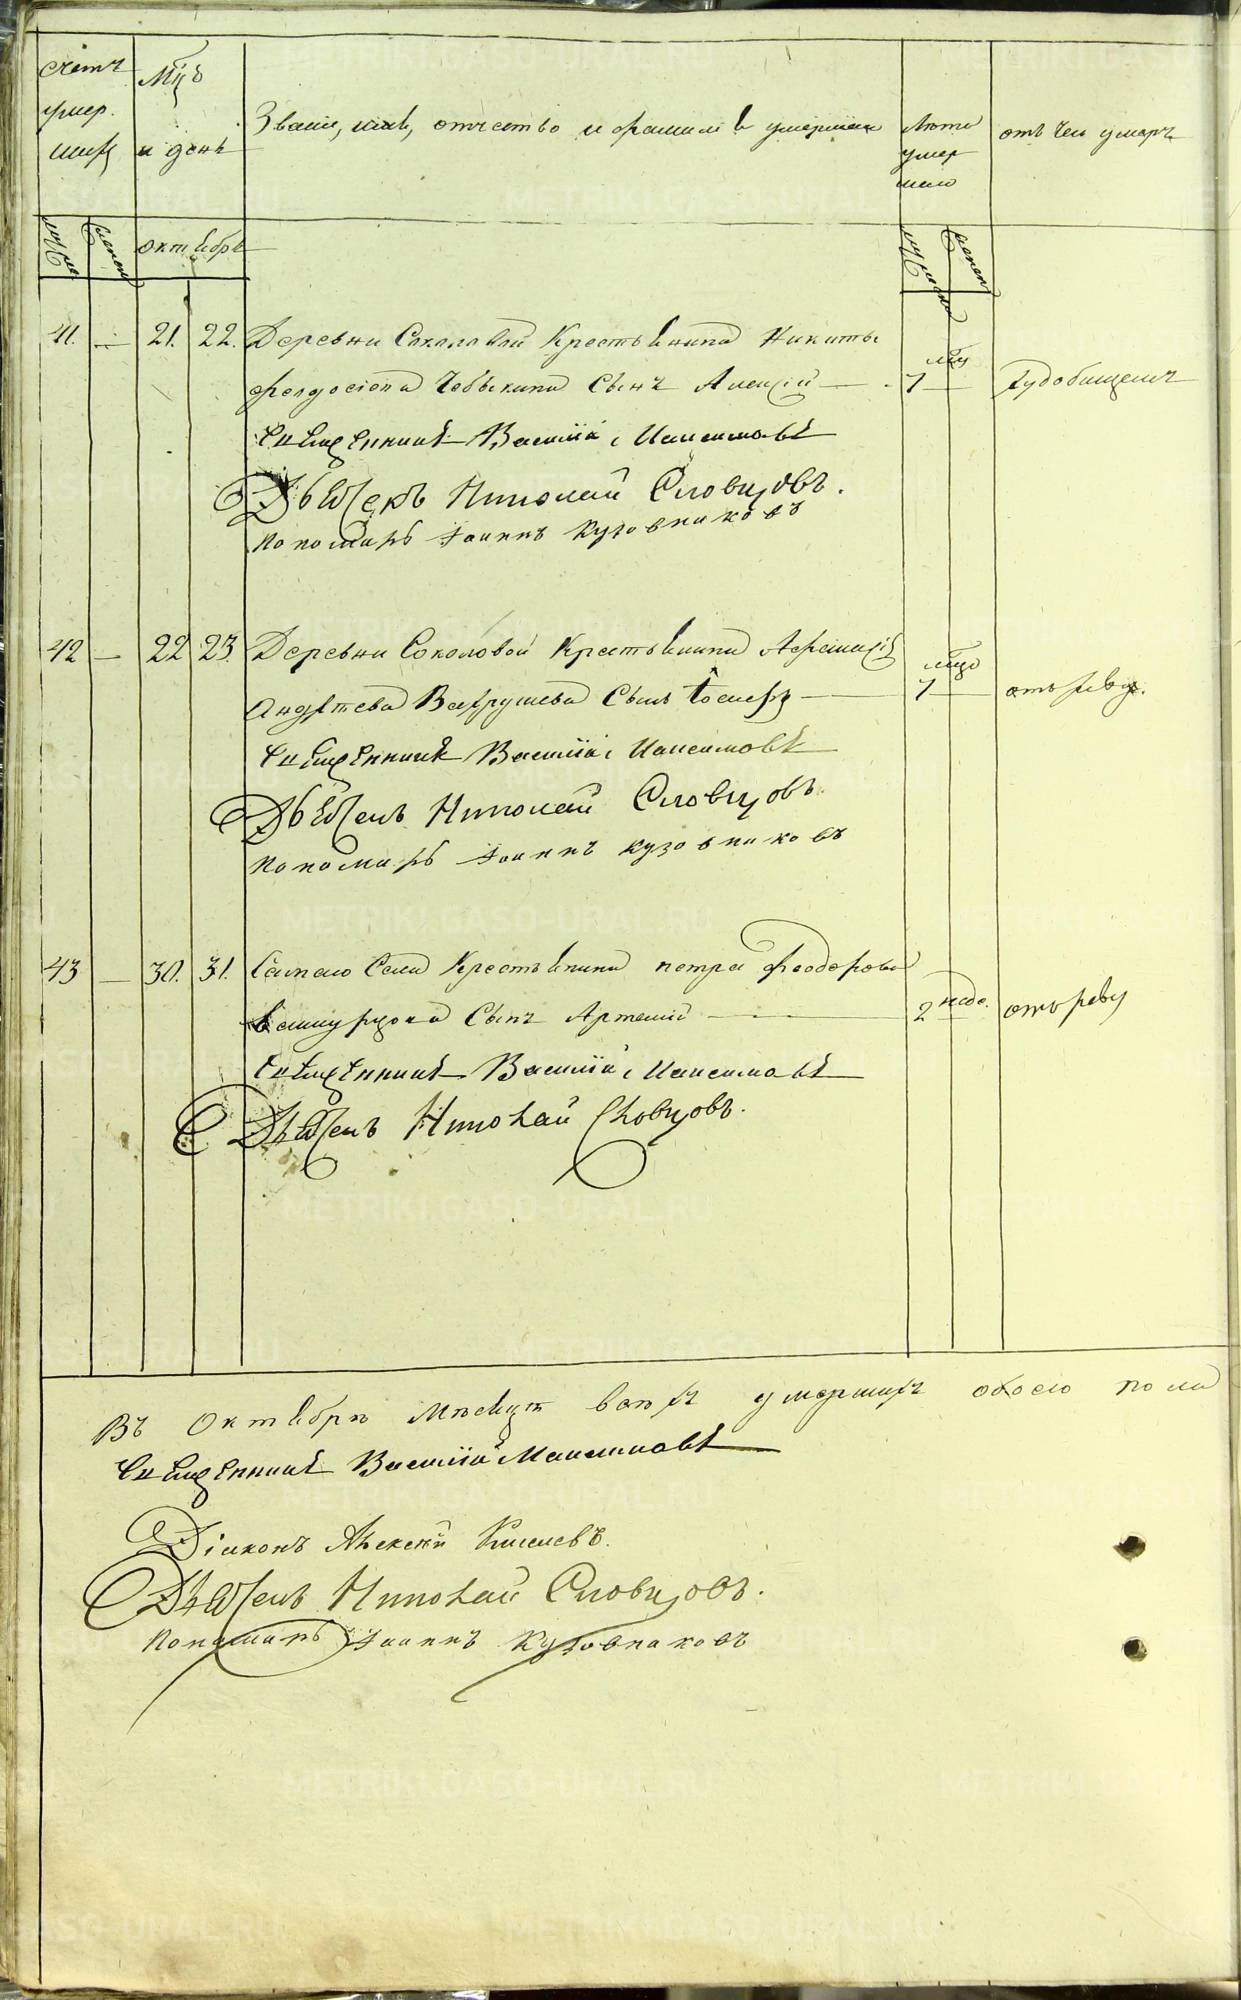 счетъ умер. шихъ
Мцъ и день
Званіе, имя, отчество и фамилія умершихъ
Лѣта умер шаго
отъ чего умеръ
муж.
женск
октябрь
мужеска
женск
41. — 21. 22. Деревни Соколовой Крестьянина Никиты
Феодосіева Чебыкина Сынъ Алексій — 1 мцъ — Худобищемъ
Священникъ Василій Максимовъ
Дьячекъ Николай Словцовъ.
Пономарь Іоаннъ Кузовниковъ
42 — 22 23 Деревни Соколовой Крестьянина
Андреева Вахрушева Сынъ Іосифъ — 1 мцъ — отъ реву.
Священникъ Василій Максимовъ
Дьячекъ Николай Словцовъ.
Пономарь Іоаннъ Кузовниковъ
43 — 30. 31. Самаго Села Крестьянина петра Феодорова
Сынъ Артемій — 2 неде. отъ реву
Священникъ Василій Максимовъ
Дьячекъ Николай Словцовъ.
Въ Октябрѣ Месяцѣ всехъ умершихъ обоего пола
Священникъ Василій Максимовъ
Діаконъ Алексѣй Киселевъ.
Дьячекъ Николай Словцовъ.
Пономарь Іоаннъ Кузовниковъ
METRIKI.GASO-URAL.RU